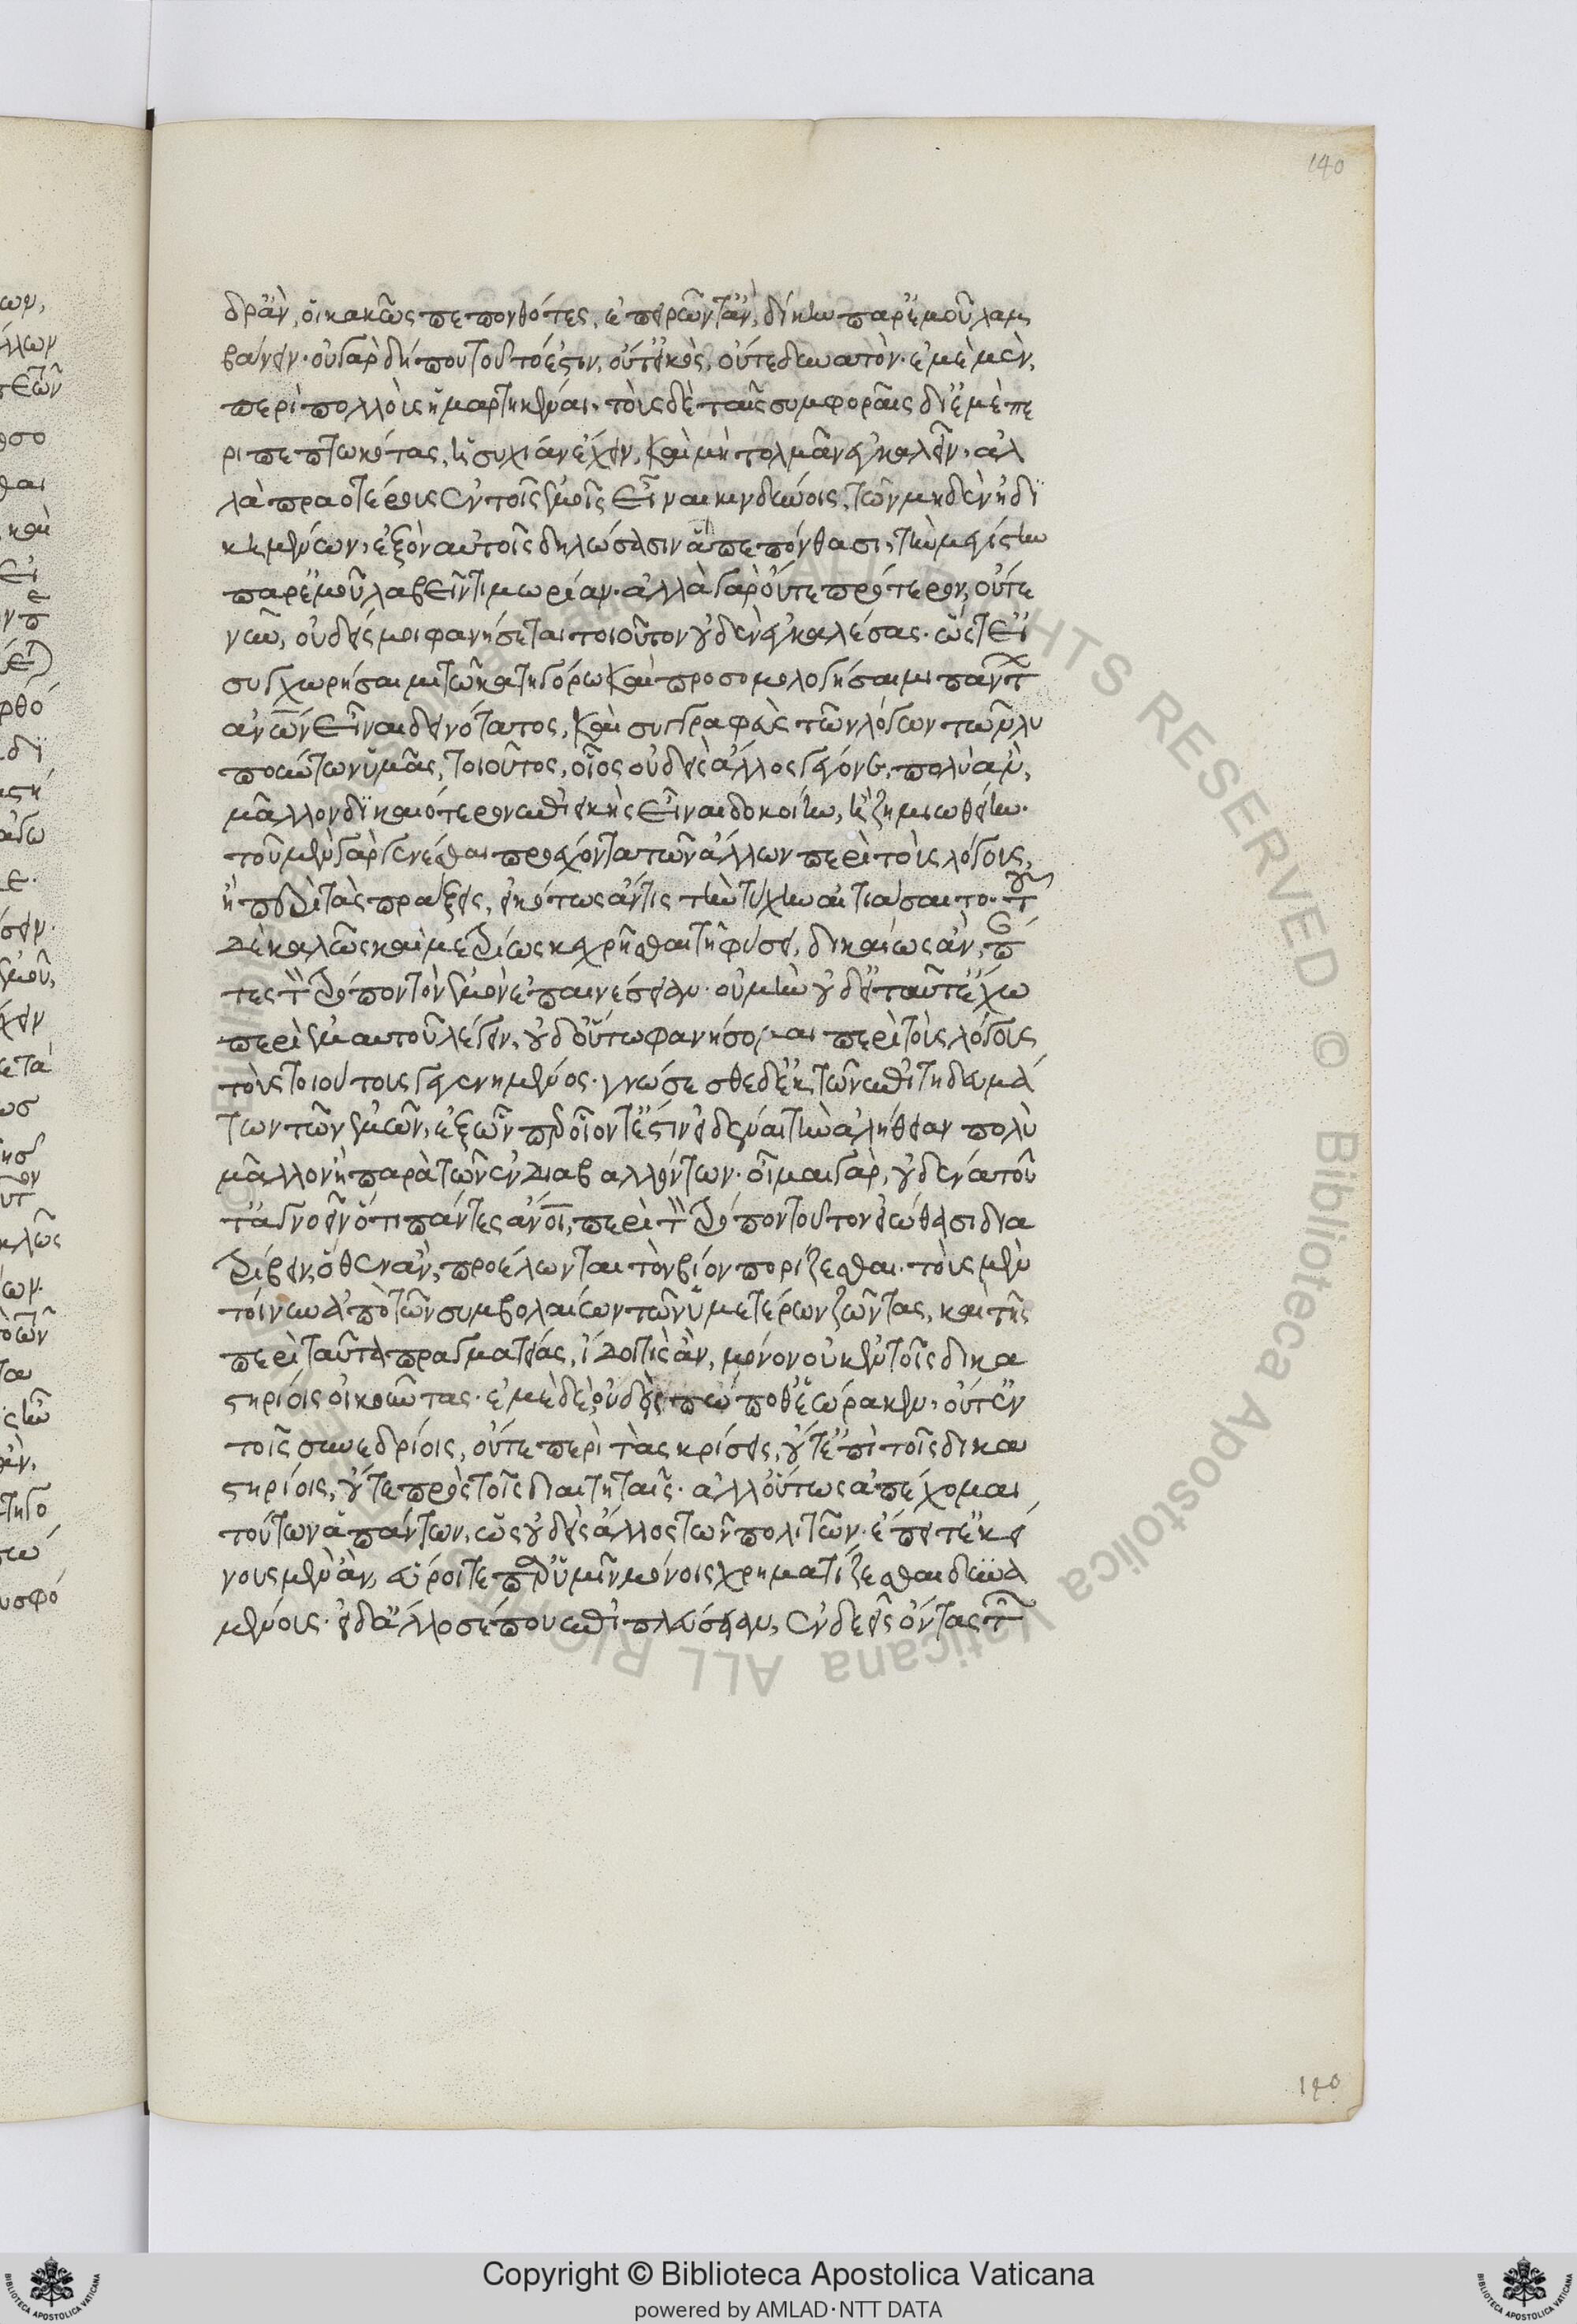 140
δρᾶν, οἱ κακῶς πεπονθότες, ἐπειρῶντ' ἂν, δίκην παρ' ἐμοῦ λαμ
βάνειν· οὐ γὰρ δήπου τοῦτό ἐστιν, οὔτ' εἰκὸς, οὔτε δυνατὸν· ἐμὲ μὲν,
περὶ πολλοὺς ἡμαρτηκέναι, τοὺς δὲ ταῖς συμφοραῖς δι' ἐμὲ πε
ριπεπτωκότας, ἡσυχίαν ἔχειν, καὶ μὴ τολμᾶν ἐγκαλεῖν, ἀλ
λὰ πραοτέρους ἐν τοῖς ἐμοῖς εἶναι κινδύνοις, τῶν μηδὲν ἠδι
κημένων, ἐξὸν αὐτοῖς δηλώσασιν ἃ πεπόνθασι, τὴν μεγίστην
παρ' ἐμοῦ λαβεῖν τιμωρίαν· ἀλλὰ γὰρ οὔτε πρότερον, οὔτε
νῦν, οὐδείς μοι φανήσεται τοιοῦτον οὐδὲν ἐγκαλέσας· ὥστ' εἰ
συγχωρήσαιμι τῶ κατηγόρω καὶ προσομολογήσαιμι πάντ
ἀνων εἶναι δεινότατος, καὶ συγγραφεὺς τῶν λόγων τῶν λυ
πούντων ὑμᾶς, τοιοῦτος, οἷος οὐδεὶς ἄλλος γέγονε, πολὺ ἂν,
μᾶλλον δικαιότερον ἐπιεικὴς εἶναι δοκοίην, ἢ ζημιωθείην·
τοῦ μὲν γὰρ γενέσθαι προέχοντα τῶν ἄλλων περὶ τοὺς λόγους,
ἢ περὶ τὰς πράξεις, εἰκότως ἄν τις τὴν τύχην αἰτιάσαιτο· τ
δὲ καλῶς καὶ μετρίως κεχρῆσθαι τῆ φύσει, δικαίως ἂν, π
τες τ τρόπον τὸν ἐμὸν ἐπαινέσειαν· οὐ μὴν οὐδ' εἰ ταῦτ' ἔχω
περὶ ἐμαυτοῦ λέγειν, οὐδ' οὕτω φανήσομαι περὶ τοὺς λόγους
τοὺς τοιούτους γεγενημένος· γνώσεσθε δ' ἐκ τῶν ἐπιτηδευμά
των τῶν ἐμῶν, ἐξ ὧν περ οἷόν τ' ἐστὶν εἰδέναι τὴν ἀλήθειαν πολὺ
μᾶλλον ἢ παρὰ τῶν ἐνδιαβαλλόντων· οἶμαι γὰρ, οὐδένα τοῦ
τ' ἀγνοεῖν ὅτι πάντες ἄνοι, περὶ τ τρόπον τοῦτον εἰώθασι δια
τρίβειν, ὅθεν ἂν, προέλωνται τὸν βίον πορίζεσθαι· τοὺς μὲν
τοίνυν ἀπὸ τῶν συμβολαίων τῶν ὑμετέρων ζῶντας, καὶ τῆς
περὶ ταῦτα πραγματείας, ἴδοι τις ἂν, μόνον οὐκ ἐν τοῖς δικα
στηρίοις οἰκοῦντας· ἐμὲ δὲ, οὐδεὶς πώποθ' ἑώρακεν, οὔτ' ἐν
τοῖς συνεδρίοις, οὔτε περὶ τὰς κρίσεις, οὔτ' ἐπὶ τοῖς δικα
στηρίοις, οὔτε πρὸς τοῖς διαιτηταῖς· ἀλλ' οὕτως ἀπέχομαι
τούτων ἁπάντων, ὡς οὐδεὶς ἄλλος τῶν πολιτῶν· ἔπειτ' ἐκεί
νους μὲν ἂν, εὕροιτε παρ' ὑμῖν μόνοις χρηματίζεσθαι δυνα
μένους· εἰ δ' ἄλλοσέ που ἐπιπλεύσειαν, ἐνδεεῖς ὄντας τ
140
Copyright © Biblioteca Apostolica Vaticana
powered by AMLAD·NTT DATA